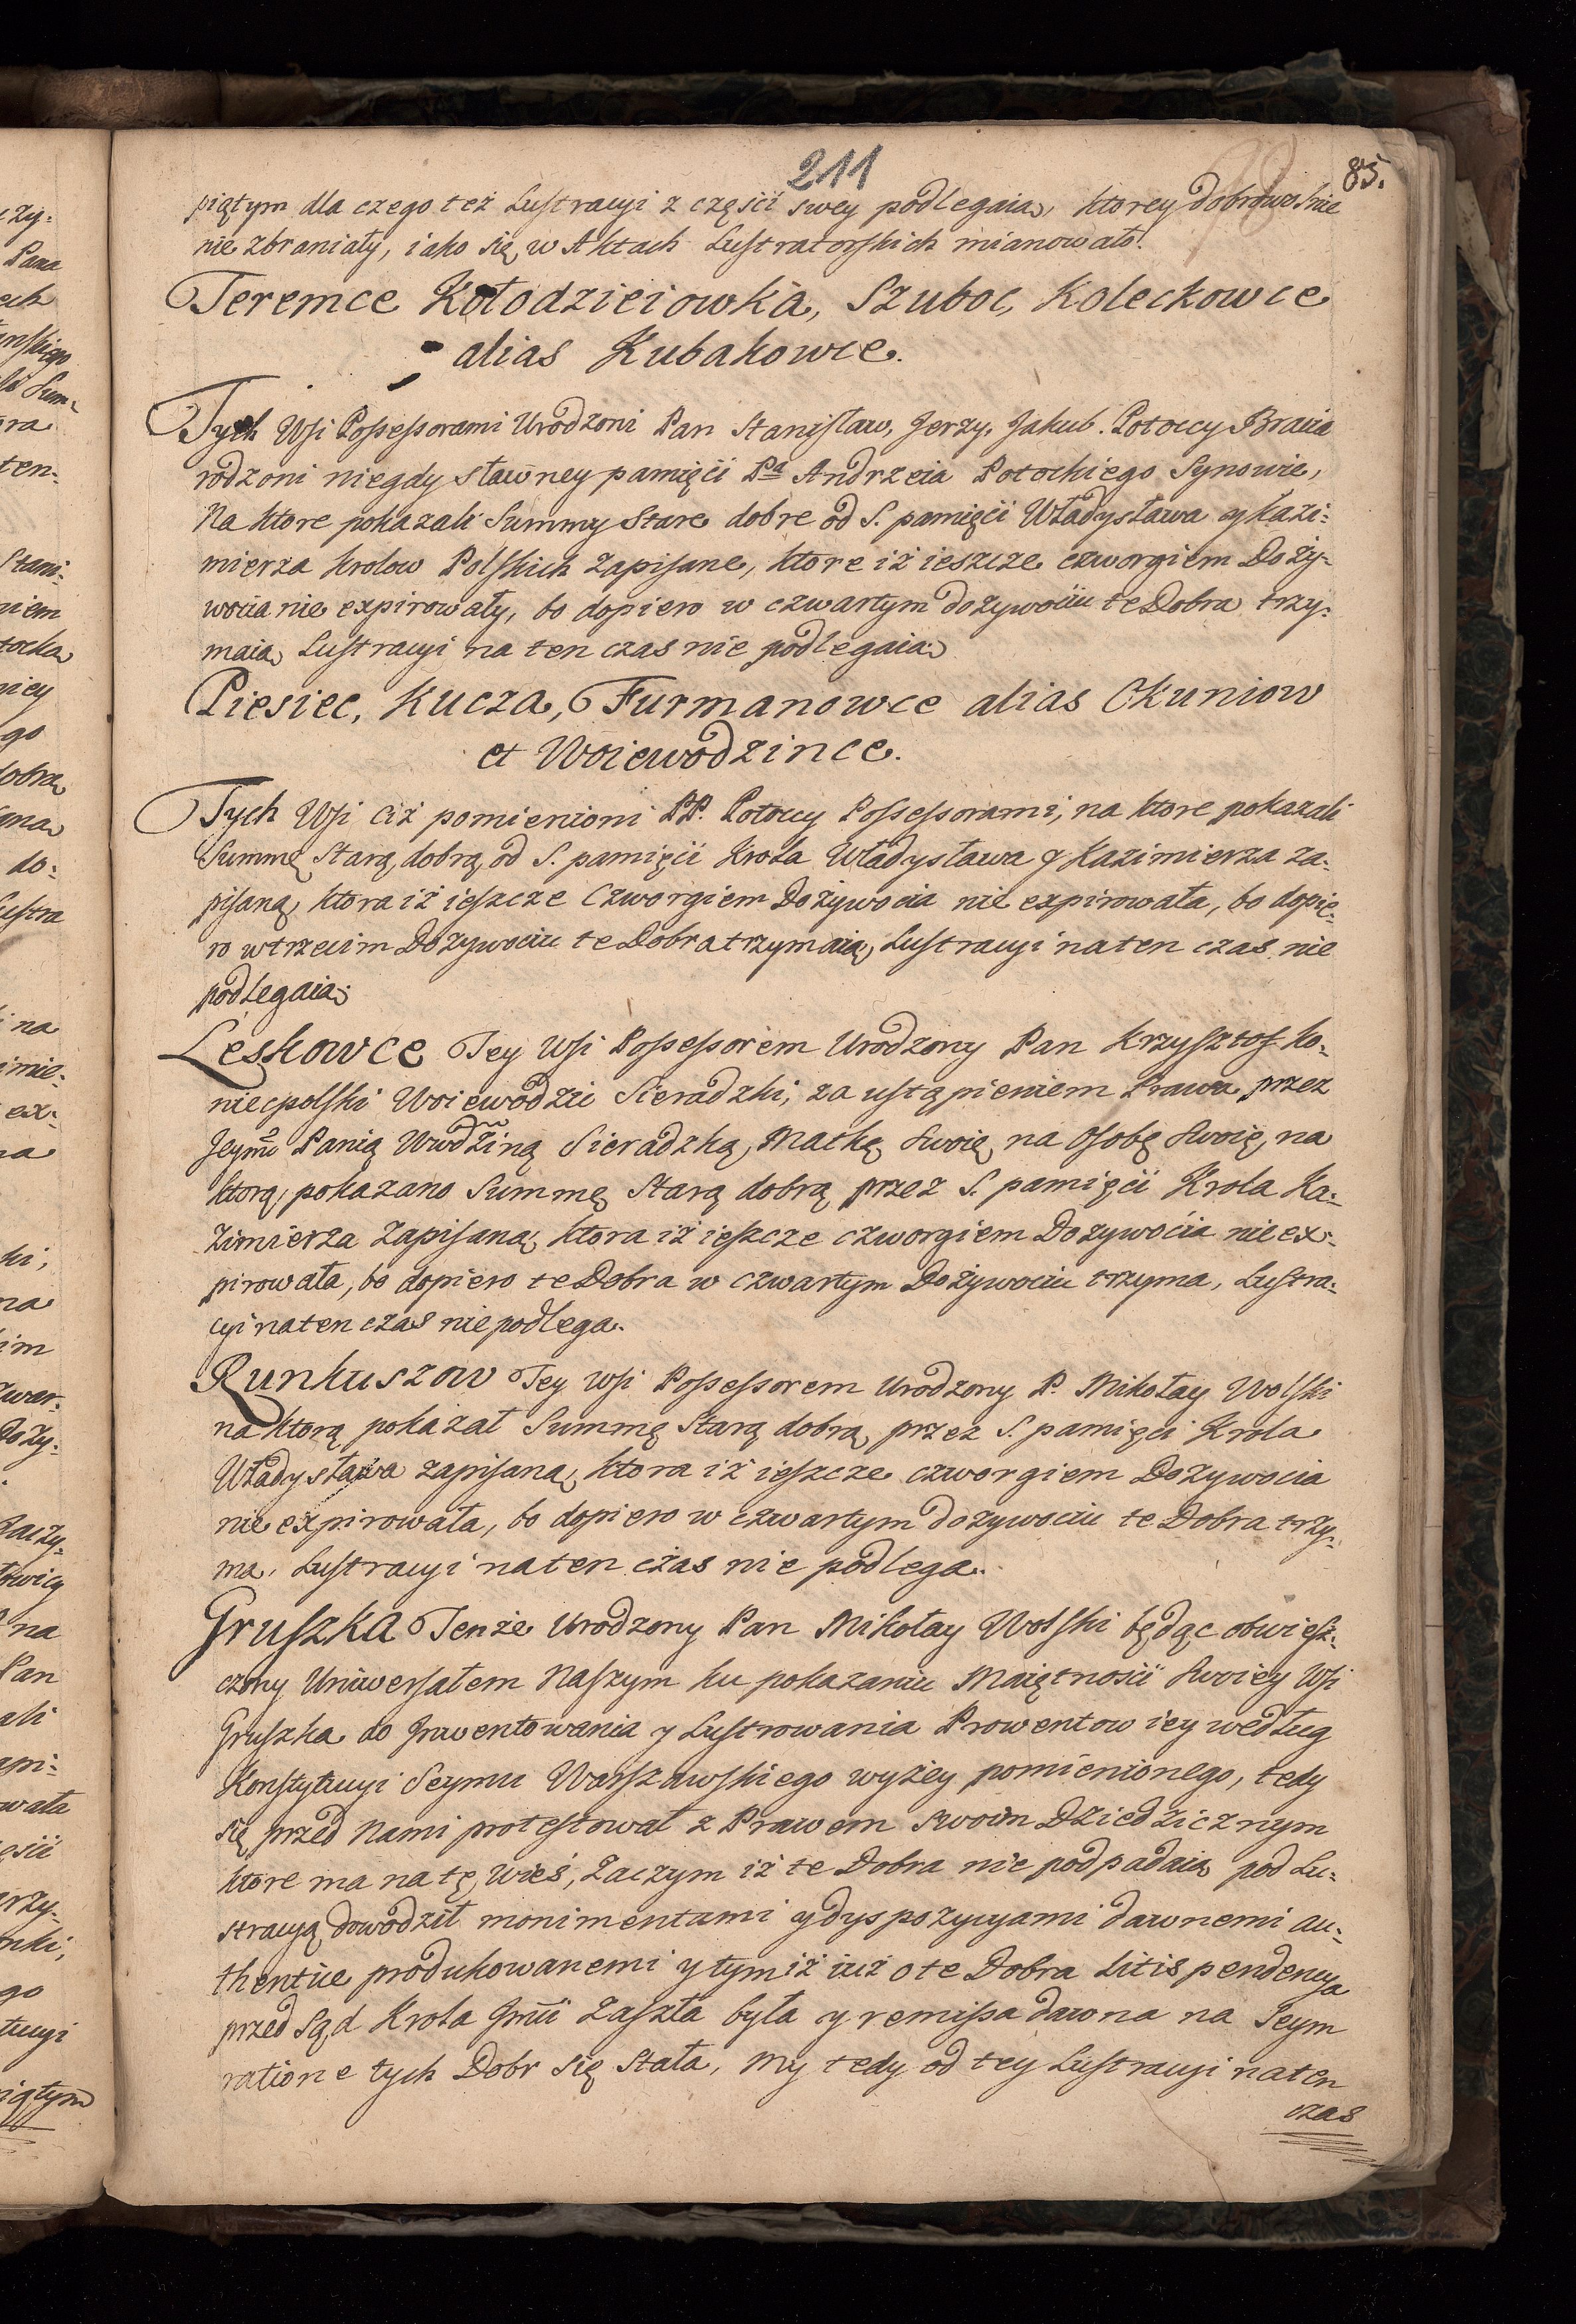 211
85.
piątym dla czego też Lustracyi z części swey podlegaią, ktorey dobrowolnie
nie zbraniały, iako się w Aktach Lustratorskich mianowało.
Teremce Kołodzieiowka, Szuboc, Koleckowce
alias Kubakowce.
Tych Wsi Possessorami Urodzoni Pan Stanisław, Jerzy, Jakub. Potoccy Bracia
rodzoni niegdy sławney pamięci Pa Andrzeia Potockiego Synowie,
Na ktore pokazali Summy Stare dobre od S. pamięci Władysława y Kazi:
mierza Krolow Polskich zapisane, ktore iż ieszcze czworgiem Doży:
wocia nie expirowały, bo dopiero w czwartym dożywociu te Dobra trzy:
maią Lustracyi na ten czas nie podlegaią
Piesiec, Kucza, Furmanowce alias Okuniow
et Woiewodzince.
Tych Wsi Ciż pomienioni PP. Potoccy Possessorami, na ktore pokazali
Summę Starą dobrą od S. pamięci Krola Władysława y Kazimierza za:
pisaną, ktora iż ieszcze Czworgiem Dożywocia nie expirowała, bo dopie:
ro w trzecim Dożywociu te Dobra trzymaią, Lustracyi na ten czas nie
podlegaią.
Leskowce Tey Wsi Possessorem Urodzony Pan Krzysztof Ko:
niecpolski Woiewodzic Sieradzki, za ustąpieniem Prawa przez
Jeymć Panią Wwdziną Sieradzką, Matkę Swoię na Osobę Swoię, na
ktorą pokazano Summę Starą dobrą przez S. pamięci Krola Ka:
zimierza zapisaną, ktora iż ieszcze czworgiem Dożywocia nie ex:
pirowała, bo dopiero te Dobra w czwartym Dożywociu trzyma, Lustra:
cyi na ten czas nie podlega.
Runkuszow Tey Wsi Possessorem Urodzony P. Mikołay Wolski
na ktorą pokazał Summę Starą dobrą przez S. pamięci Krola
Władysława zapisaną, ktora iż ieszcze czworgiem Dożywocia
nie expirowała, bo dopiero w czwartym dożywociu te Dobra trzy:
ma, Lustracyi na ten czas nie podlega.
Gruszka Tenże Urodzony Pan Mikołay Wolski będąc obwiesz:
czony Uniwersałem Naszym ku pokazaniu Maiętności Swoiey Wsi
Gruszka do Inwentowania y Lustrowania Prowentow iey według
Konstytucyi Seymu Warszawskiego wyżey pomienionego, tedy
się przed Nami protestował z Prawem swoim Dziedzicznym
ktore ma na tę wieś, Zaczym iż te Dobra nie podpadaią pod Lu:
stracyą, dowodził monimentami y dyspozycyami dawnemi au:
thentice produkowanemi y tym iż iuż o te Dobra Litis pendencya
przed Sąd Krola Jmći Zaszła była y remissa dawna na Seym
ratione tych Dobr się Stała, My tedy od tey Lustracyi na ten
czas